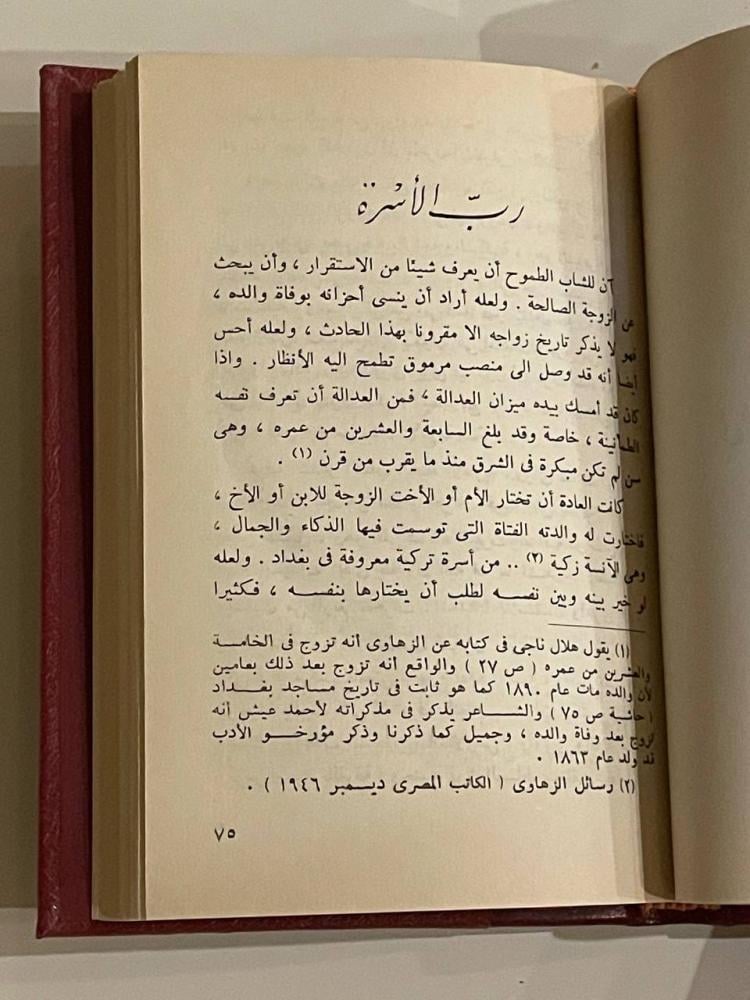 ربّ الأسْرة
آن للشاب الطموح أن يعرف شيئا من الاستقرار ، وأن يبحث
عن الزوجة الصالحة . ولعله أراد أن ينسى أحزانه بوفاة والده ،
فهو لا يذكر تاريخ زواجه الا مقرونا بهذا الحادث ، ولعله أحس
أيضا أنه قد وصل الى منصب مرموق تطمح اليه الأنظار . واذا
كان قد أمسك بيده ميزان العدالة ، فمن العدالة أن تعرف نفسه
الطمأنينة ، خاصة وقد بلغ السابعة والعشرين من عمره ، وهى
سن لم تكن مبكرة فى الشرق منذ ما يقرب من قرن (١) .
كانت العادة أن تختار الأم أو الأخت الزوجة للابن أو الأخ ،
فاختارت له والدته الفتاة التى توسمت فيها الذكاء والجمال ،
وهى الآنسة زكية (٢) .. من أسرة تركية معروفة فى بغداد . ولعله
لو خير بينه وبين نفسه لطلب أن يختارها بنفسه ، فكثيرا
(١) يقول هلال ناجى فى كتابه عن الزهاوى أنه تزوج فى الخامسة
والعشرين من عمره ( ص ٢٧ ) والواقع أنه تزوج بعد ذلك بعامين
لأن والده مات عام ١٨٩٠ كما هو ثابت فى تاريخ مساجد بغداد
( حاشية ص ٧٥ ) والشاعر يذكر فى مذكراته لأحمد عيش أنه
تزوج بعد وفاة والده ، وجميل كما ذكرنا وذكر مؤرخو الأدب
قد ولد عام ١٨٦٣ .
(٢) رسائل الزهاوى ( الكاتب المصرى ديسمبر ١٩٤٦ ) .
٧٥